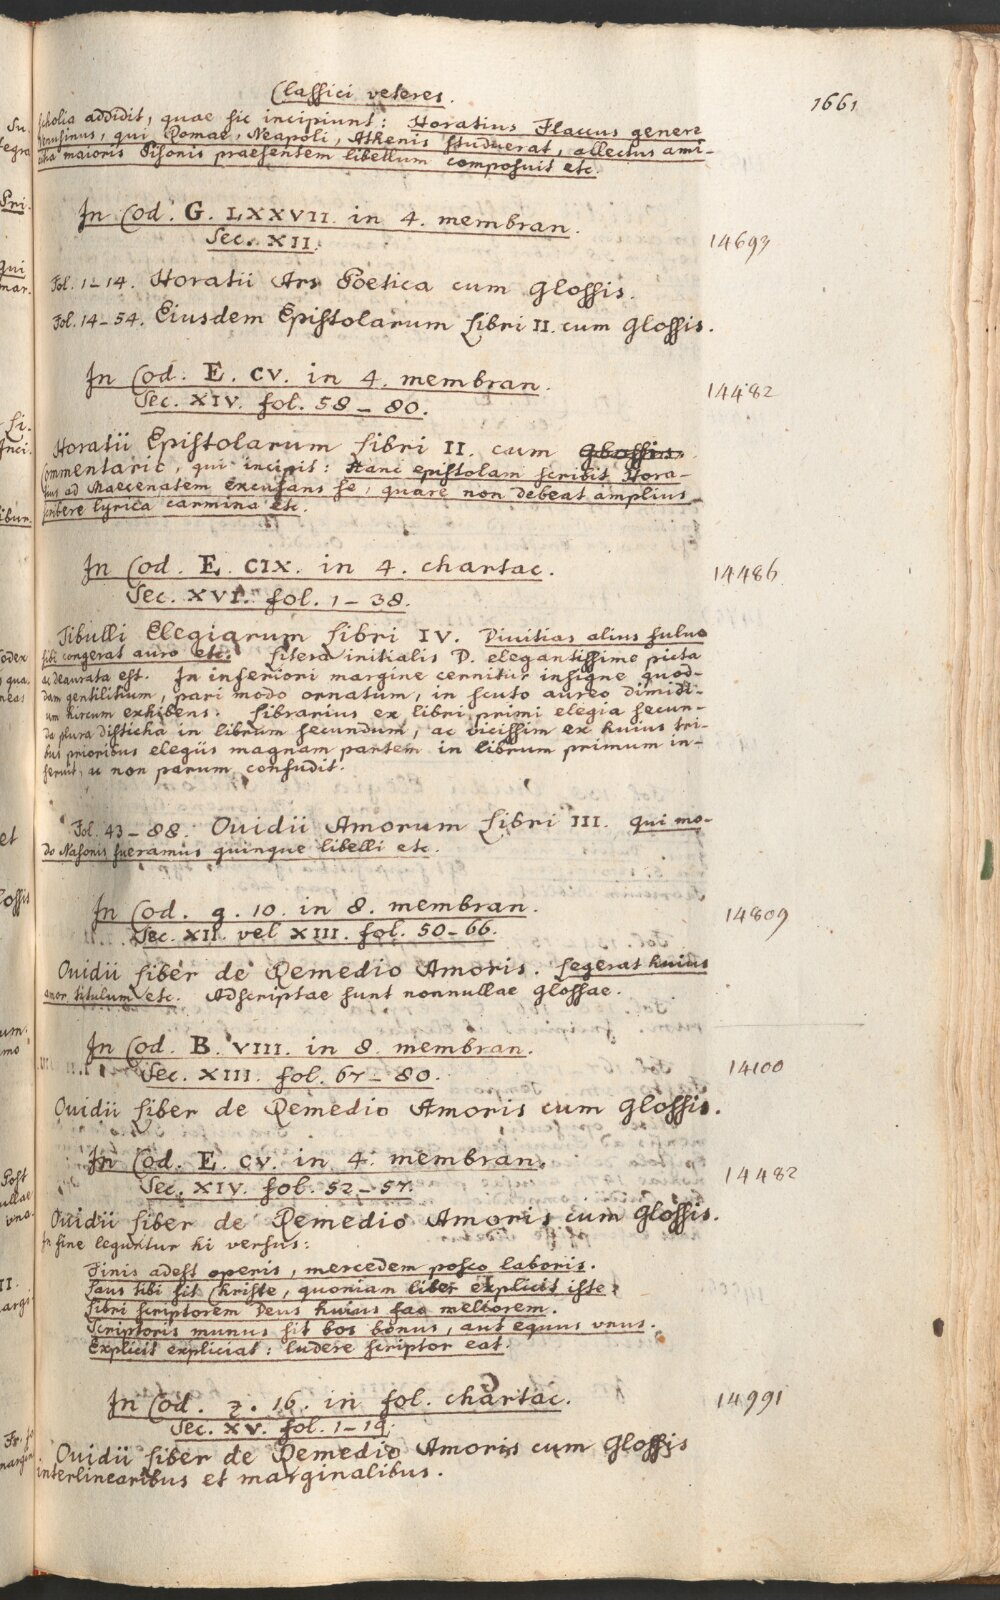 Classici veteres.
1661
scholia addidit, quae sic incipiunt: Horatius Flaccus genere
Venusinus, qui Romae, Neapoli, Athenis studuerat, allectus ami-
citia maioris Pisonis praesentem libellum composuit etc.
In Cod. G. LXXVII. in 4. membran.
14693
Sec. XII.
Fol. 1-14. Horatii Ars Poetica cum Glossis.
Fol. 14-54. Eiusdem Epistolarum Libri II. cum Glossis.
In Cod. E. CV. in 4. membran.
14482
Sec. XIV. fol. 58-80.
Horatii Epistolarum Libri II. cum Glossis.
Commentario, qui incipit: Hanc epistolam scribit Hora-
tius ad Maecenatem excusans se, quare non debeat amplius
scribere lyrica carmina etc.
In Cod. E. CIX. in 4. chartac.
14486
Sec. XVI. fol. 1-38.
Tibulli Elegiarum Libri IV. Divitias alius fulvo
sibi congerat auro etc. Litera initialis D. elegantissime picta
ac deaurata est. In inferiori margine cernitur insigne quod-
dam gentilitium, pari modo ornatum, in scuto aureo dimidi-
um hircum exhibens. Librarius ex libri primi elegia secun-
da plura disticha in librum secundum, ac vicissim ex huius tri-
bus prioribus elegiis magnam partem in librum primum in-
seruit, u non parum confudit.
Fol. 43-88. Ouidii Amorum Libri III. qui mo-
do Nasonis fueramus quinque libelli etc.
In Cod. g. 10. in 8. membran.
14809
Sec. XII. vel XIII. fol. 50-66.
Ouidii Liber de Remedio Amoris. Legerat huius
amor titulum etc. Adscriptae sunt nonnullae Glossae.
In Cod. B. VIII. in 8. membran.
14100
Sec. XIII. fol. 67-80.
Ouidii Liber de Remedio Amoris cum Glossis.
In Cod. E. CV. in 4. membran.
14482
Sec. XIV. fol. 52-57.
Ouidii Liber de Remedio Amoris cum Glossis.
In fine leguntur hi versus:
Finis adest operis, mercedem posco laboris.
Laus tibi sit Christe, quoniam liber explicit iste.
Libri scriptorem Deus huius fac meliorem.
Scriptoris munus sit bos bonus, aut equus vnus.
Explicit expliciat: ludere scriptor eat.
In Cod. z. 16. in fol. chartac.
14991
Sec. XV. fol. 1-19.
Ouidii Liber de Remedio Amoris cum Glossis
interlinearibus et marginalibus.